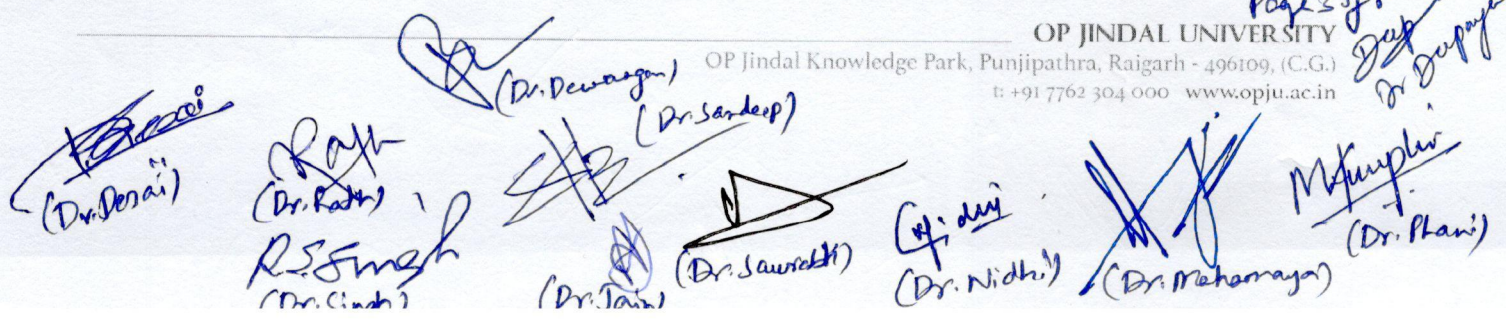 Page 5 of
OP JINDAL UNIVERSITY
OP Jindal Knowledge Park, Punjipathra, Raigarh - 496109, (C.G.)
t: +91 7762 304 000 www.opju.ac.in
(Dr. Dewangan)
(Dr. Sandeep)
(Dr. Desai)
(Dr. Rath)
R.S. Singh
(Dr. Singh)
(Dr. Jain)
(Dr. Saurabh)
(Dr. Nidhi)
(Dr. Mahamaya)
(Dr. Phani)